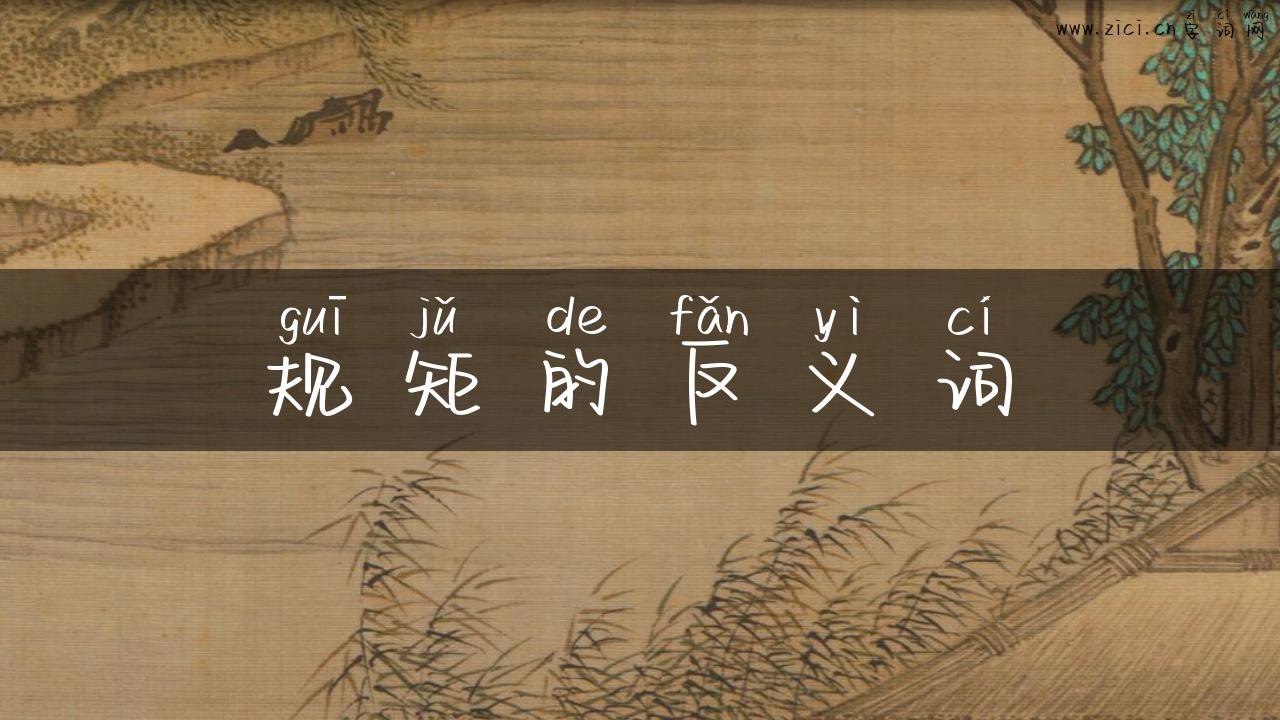 zì cí wǎng
www.zici.cn 字词网
guī jǔ de fǎn yì cí
规矩的反义词